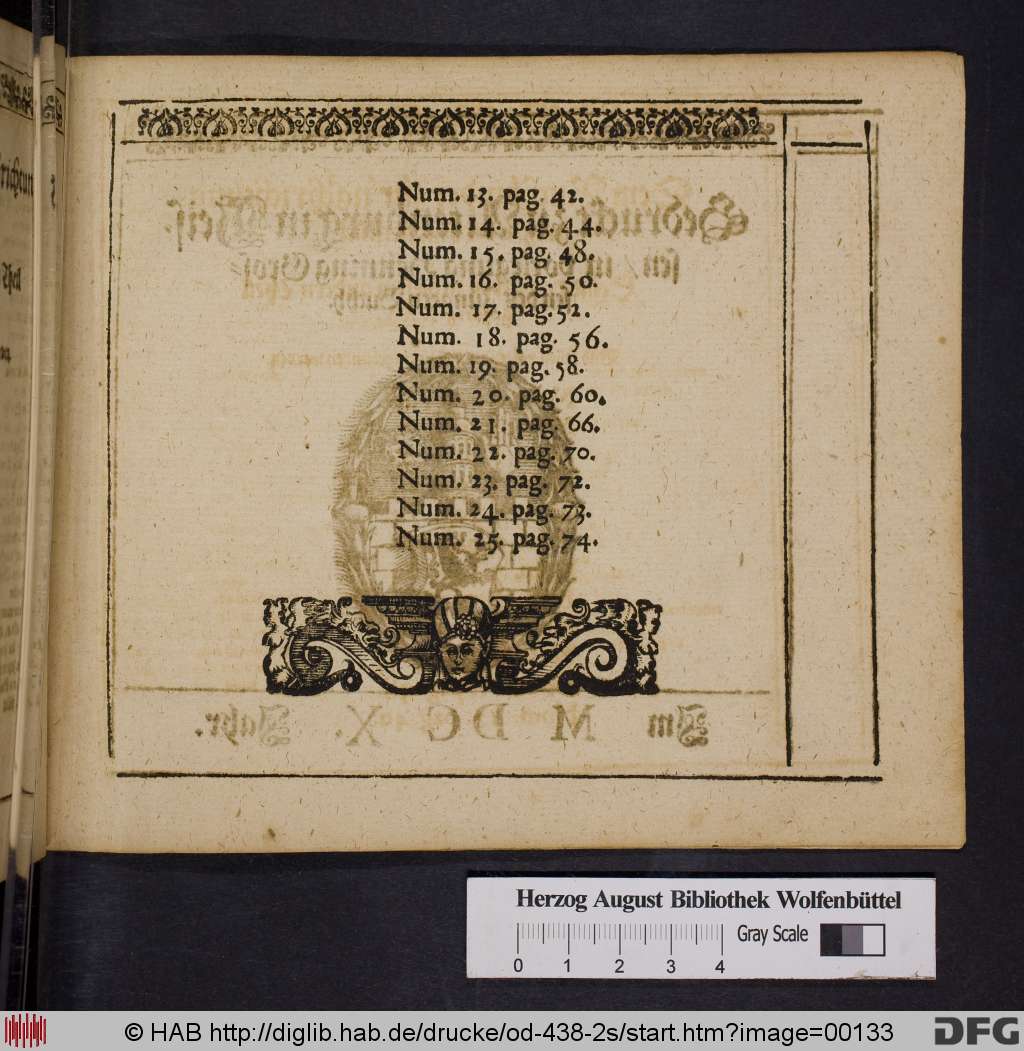 richeun
Theil
Num. 13. pag. 42.
Num. 14. pag. 44.
Num. 15. pag. 48.
Num. 16. pag. 50.
Num. 17. pag. 52.
Num. 18. pag. 56.
Num. 19. pag. 58.
Num. 20. pag. 60.
Num. 21. pag. 66.
Num. 22. pag. 70.
Num. 23. pag. 72.
Num. 24. pag. 73.
Num. 25. pag. 74.
Im M D C X. Jahr.
Herzog August Bibliothek Wolfenbüttel
Gray Scale
0 1 2 3 4
© HAB http://diglib.hab.de/drucke/od-438-2s/start.htm?image=00133
DFG